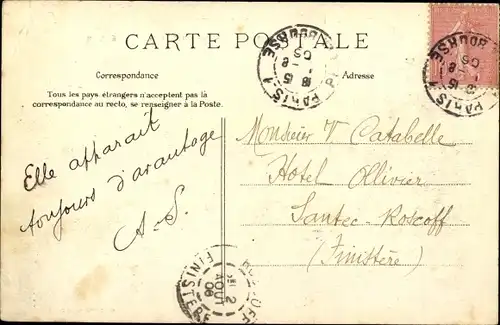 CARTE POSTALE
Correspondance
Adresse
Tous les pays étrangers n'acceptent pas la
correspondance au recto, se renseigner à la Poste.
PARIS 1
18 15
8
06
BOURSE
PARIS 1
15
8
06
BOURSE
Elle apparait
toujours d'avantage
A-S.
Monsieur V Catabelle
Hotel Ollivier
Santec-Roscoff
(Finistère)
ROSCOFF
2
AOUT
06
FINISTERE